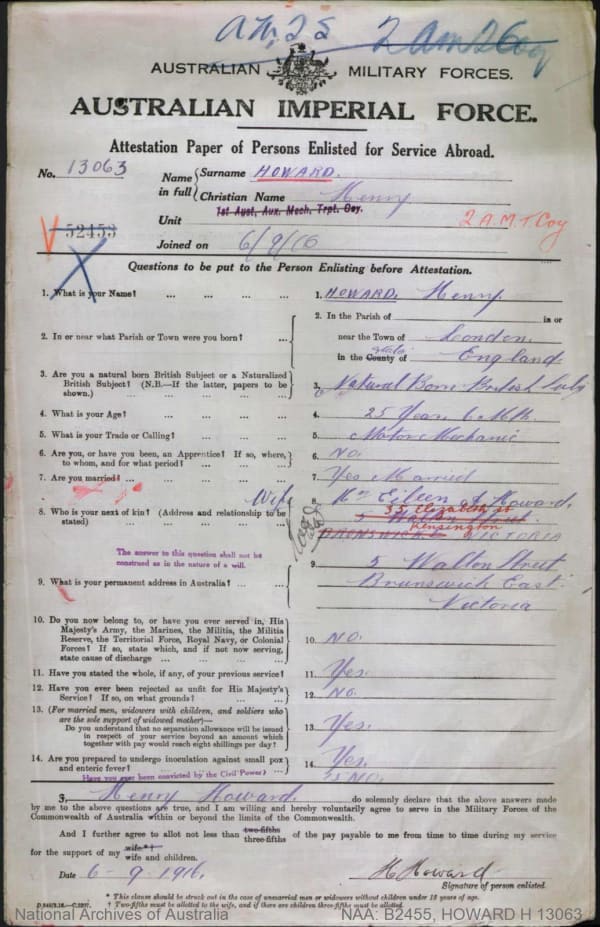 A.M.2S 2 Am2Coy
AUSTRALIAN MILITARY FORCES.
AUSTRALIAN IMPERIAL FORCE.
Attestation Paper of Persons Enlisted for Service Abroad.
No. 13063
Name in full { Surname HOWARD.
Christian Name Henry
1st Aust. Aux. Mech. Trpt. Coy.
Unit 2 A.M.T Coy
52453
Joined on 6/9/16
Questions to be put to the Person Enlisting before Attestation.
1. What is your Name? ... ... ... 1. HOWARD. Henry.
2. In or near what Parish or Town were you born? ... 2. In the Parish of in or
near the Town of London.
in the County of England.
3. Are you a natural born British Subject or a Naturalized British Subject? (N.B.—If the latter, papers to be shown.) ... ... 3. Natural Born British Subj
4. What is your Age? ... ... ... 4. 25 Years 6 Mth.
5. What is your Trade or Calling? ... ... ... 5. Motor Mechanic
6. Are you, or have you been, an Apprentice? If so, where, to whom, and for what period? ... ... 6. NO.
7. Are you married? ... ... ... 7. Yes Married
8. Who is your next of kin? (Address and relationship to be stated) ... ... Wife 8. Mrs Eileen Howard,
35 Elizabeth St
5 Walton Street.
Kensington
BRUNSWICK E VICTORIA
The answer to this question shall not be
construed as in the nature of a will.
9. What is your permanent address in Australia? ... ... 9. 5 Walton Street
Brunswick East
Victoria
10. Do you now belong to, or have you ever served in, His Majesty's Army, the Marines, the Militia, the Militia Reserve, the Territorial Force, Royal Navy, or Colonial Forces? If so, state which, and if not now serving, state cause of discharge ... ... ... 10. NO.
11. Have you stated the whole, if any, of your previous service? 11. Yes.
12. Have you ever been rejected as unfit for His Majesty's Service? If so, on what grounds? ... ... 12. NO.
13. (For married men, widowers with children, and soldiers who are the sole support of widowed mother)—
Do you understand that no separation allowance will be issued in respect of your service beyond an amount which together with pay would reach eight shillings per day? ... 13. Yes.
14. Are you prepared to undergo inoculation against small pox and enteric fever? ... ... 14. Yes.
Have you ever been convicted by the Civil Power? 15 NO.
I, Henry Howard. do solemnly declare that the above answers made
by me to the above questions are true, and I am willing and hereby voluntarily agree to serve in the Military Forces of the
Commonwealth of Australia within or beyond the limits of the Commonwealth.
And I further agree to allot not less than two-fifths three-fifths of the pay payable to me from time to time during my service
for the support of my wife*† wife and children.
Date 6-9-1916. H Howard
Signature of person enlisted.
* This clause should be struck out in the case of unmarried men or widowers without children under 18 years of age.
† Two-fifths must be allotted to the wife, and if there are children three-fifths must be allotted.
National Archives of Australia NAA: B2455, HOWARD H 13063